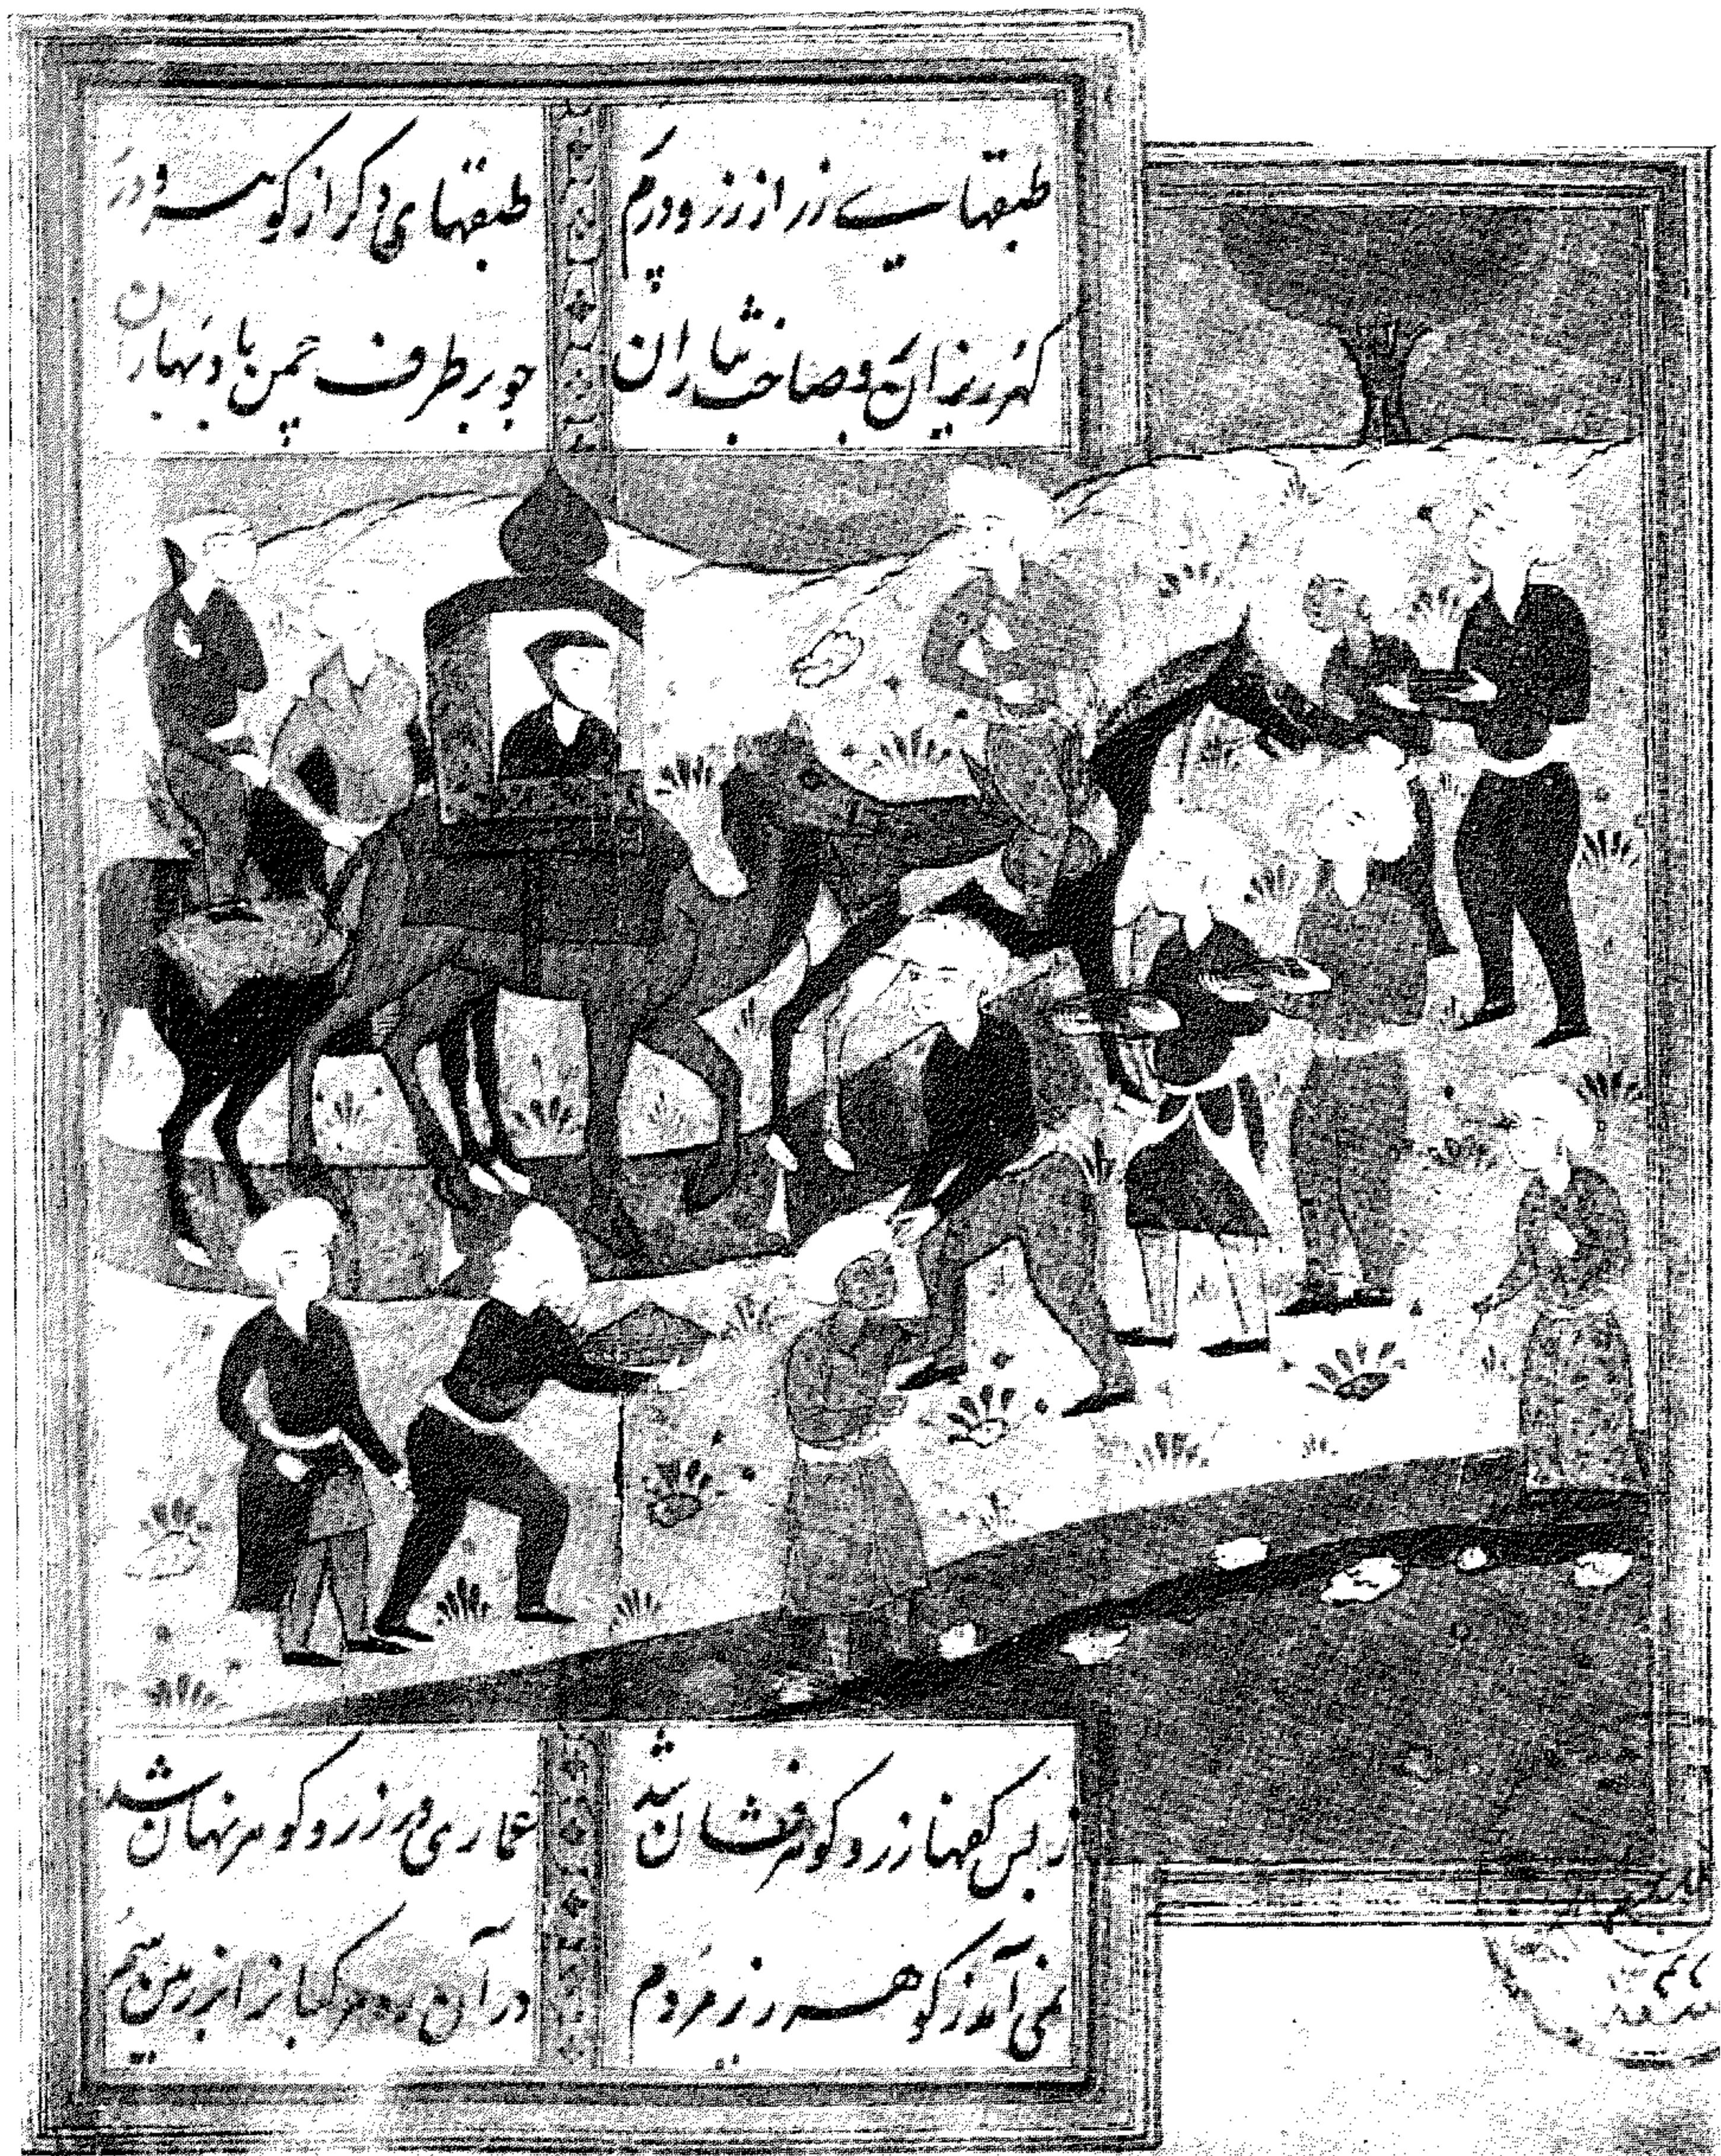 طبقهای زر از زر و درم پر طبقهای دکر از کوهر و در
کهرریزان برو صاحب نثاران چو بر طرف چمن باد بهاران
ز بس کفها زر و کوهر فشان شد عماری در زر و کوهر نهان شد
نمی آمد ز کوهر ریز مردم در آن ره مرکبانرا بر زمین سم